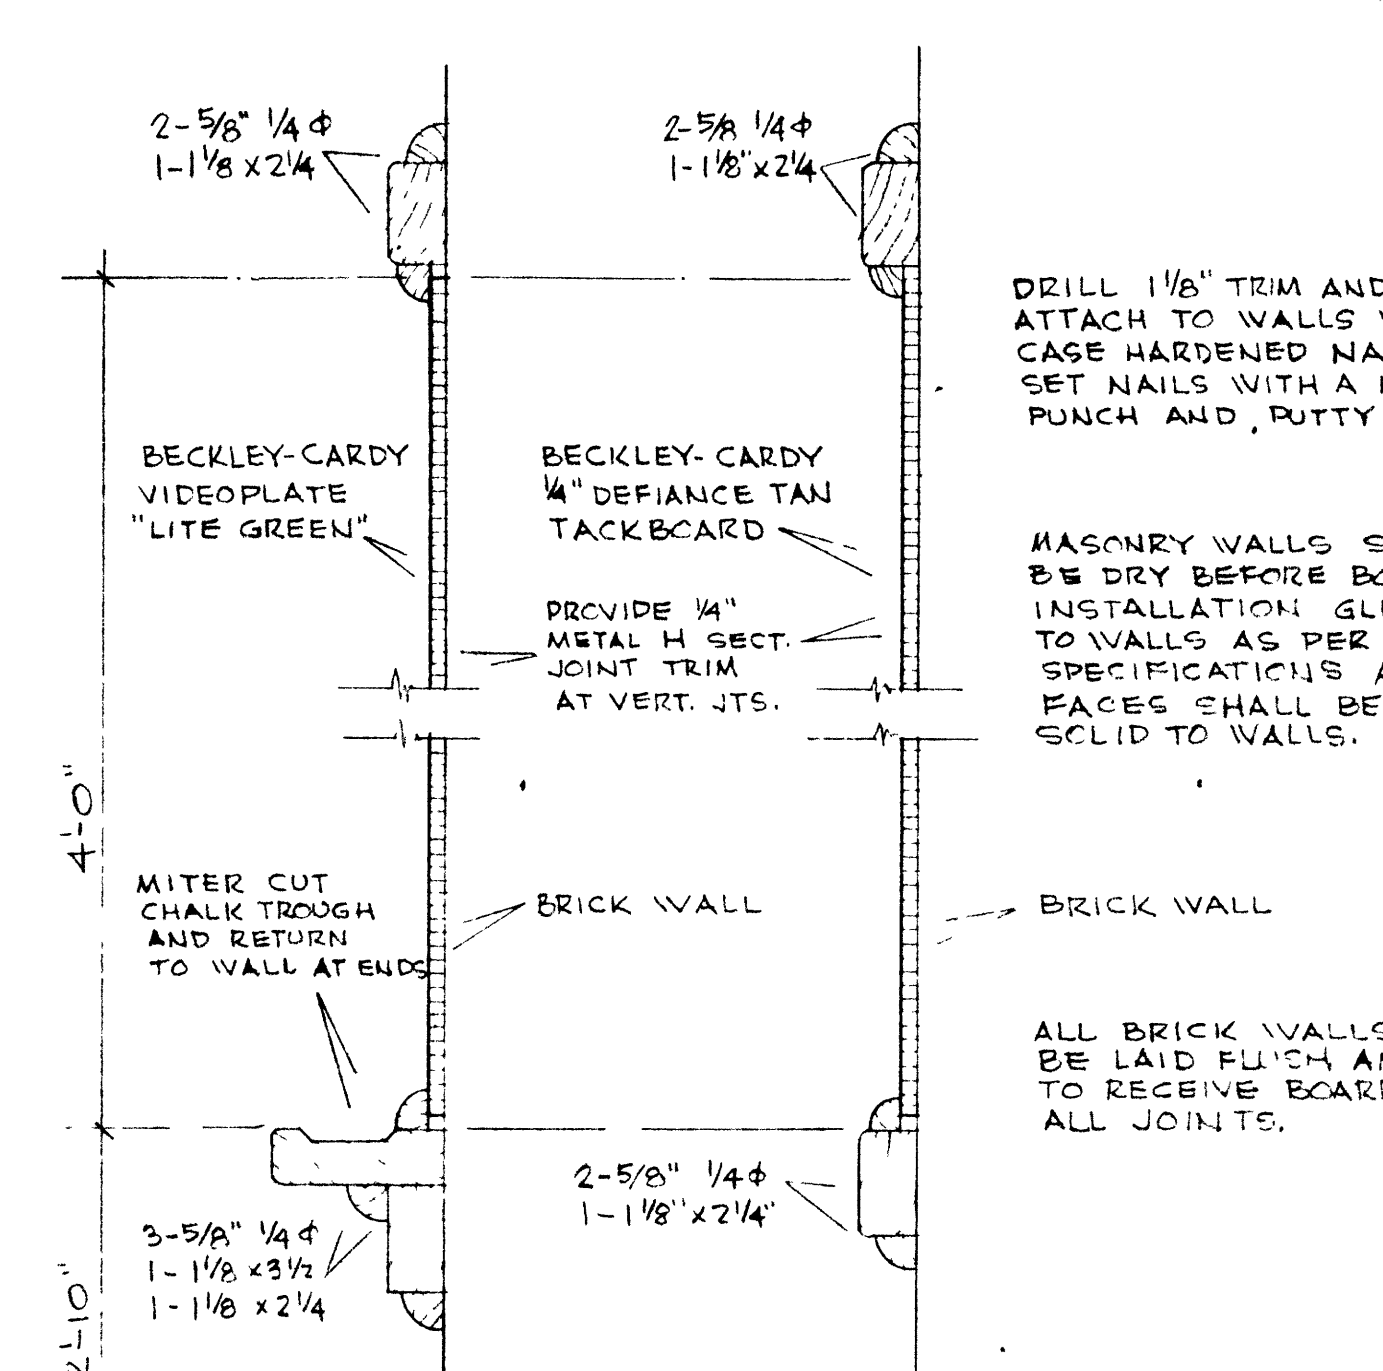 2-5/8" 1/4 ⌽
1-1 1/8 x 2 1/4
2-5/8 1/4 ⌽
1-1 1/8" x 2 1/4
DRILL 1 1/8" TRIM AND
ATTACH TO WALLS
CASE HARDENED
SET NAILS WITH A
PUNCH AND, PUTTY
BECKLEY-CARDY
VIDEOPLATE
"LITE GREEN"
BECKLEY-CARDY
1/4" DEFIANCE TAN
TACKBOARD
PROVIDE 1/4"
METAL H SECT.
JOINT TRIM
AT VERT. JTS.
MASONRY WALLS
BE DRY BEFORE
INSTALLATION
TO WALLS AS PER
SPECIFICATIONS
FACES SHALL BE
SOLID TO WALLS.
4'-0"
MITER CUT
CHALK TROUGH
AND RETURN
TO WALL AT ENDS
BRICK WALL
BRICK WALL
ALL BRICK WALLS
BE LAID FLUSH
TO RECEIVE
ALL JOINTS.
2-5/8" 1/4 ⌽
1-1 1/8" x 2 1/4"
3-5/8" 1/4 ⌽
1-1 1/8 x 3 1/2
1-1 1/8 x 2 1/4
2'-10"